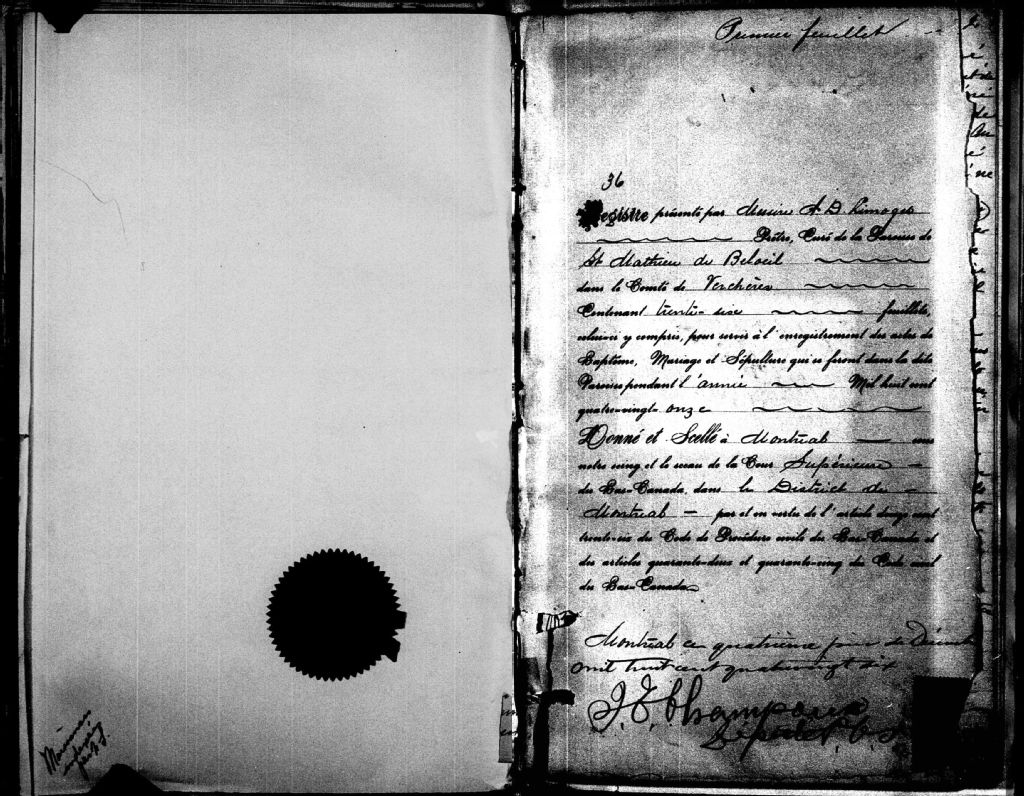 Premier feuillet
36
Registre présenté par Messire A D Limoges
Prêtre, Curé de la Paroisse de
St Mathieu de Beloeil
dans le Comté de Verchères
Contenant trente-six feuillets,
celui-ci y compris, pour servir à l'enregistrement des actes de
Baptême, Mariage et Sépulture qui se feront dans la dite
Paroisse pendant l'année Mil huit cent
quatre-vingt-onze
Donné et Scellé à Montréal sous
notre seing et le sceau de la Cour Supérieure
du Bas-Canada, dans le District de
Montréal par et en vertu de l'article douze cent
trente-six du Code de Procédure civile du Bas-Canada et
des articles quarante-deux et quarante-cinq du Code civil
du Bas-Canada
Montréal ce quatrième jour de Décembre
mil huit cent quatrevingt dix